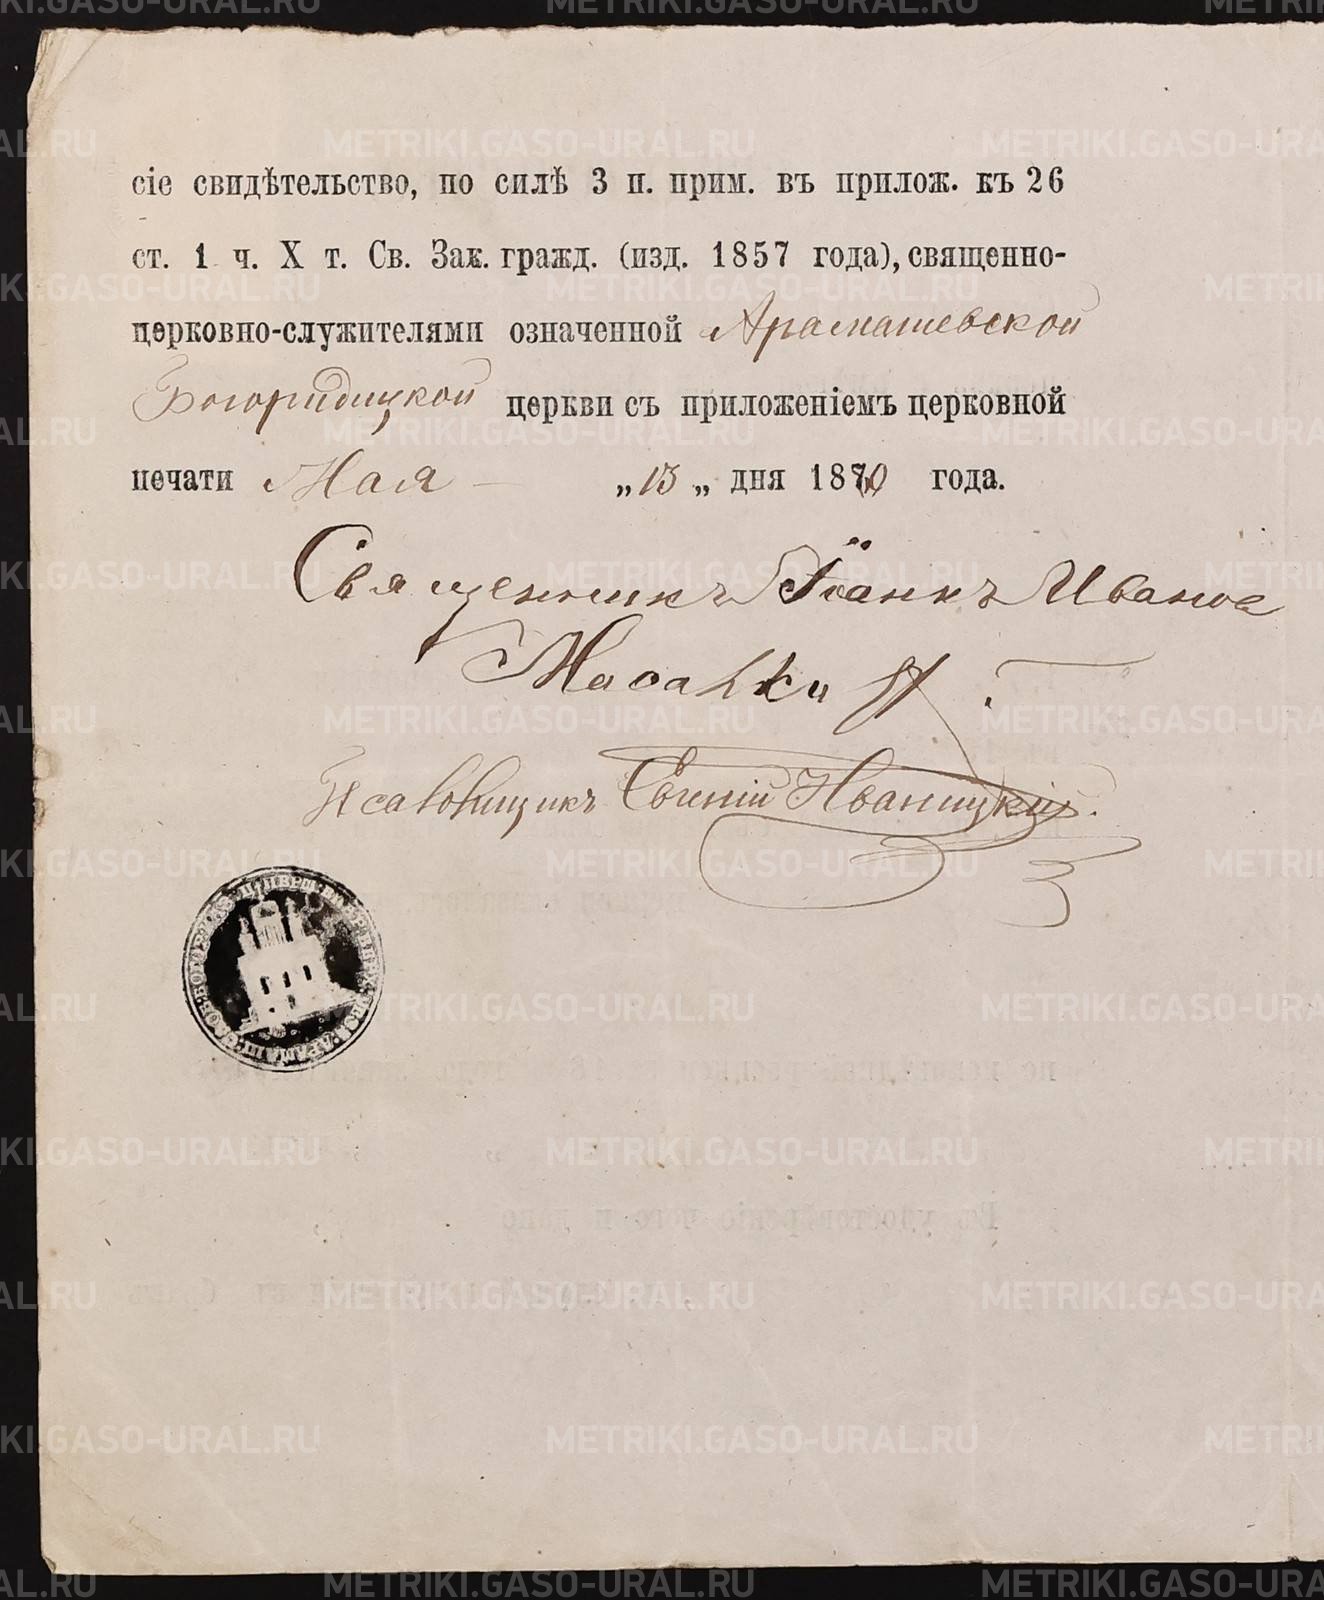 сіе свидѣтельство, по силѣ 3 п. прим. въ прилож. къ 26
ст. 1 ч. X т. Св. Зак. гражд. (изд. 1857 года), священно-
церковно-служителями означенной Арамашевской
Богородицкой церкви съ приложеніемъ церковной
печати Мая — „13„ дня 1870 года.
Священникъ Іоаннъ Иванов
Псаломщикъ Евгеній Иваницкій.
METRIKI.GASO-URAL.RU